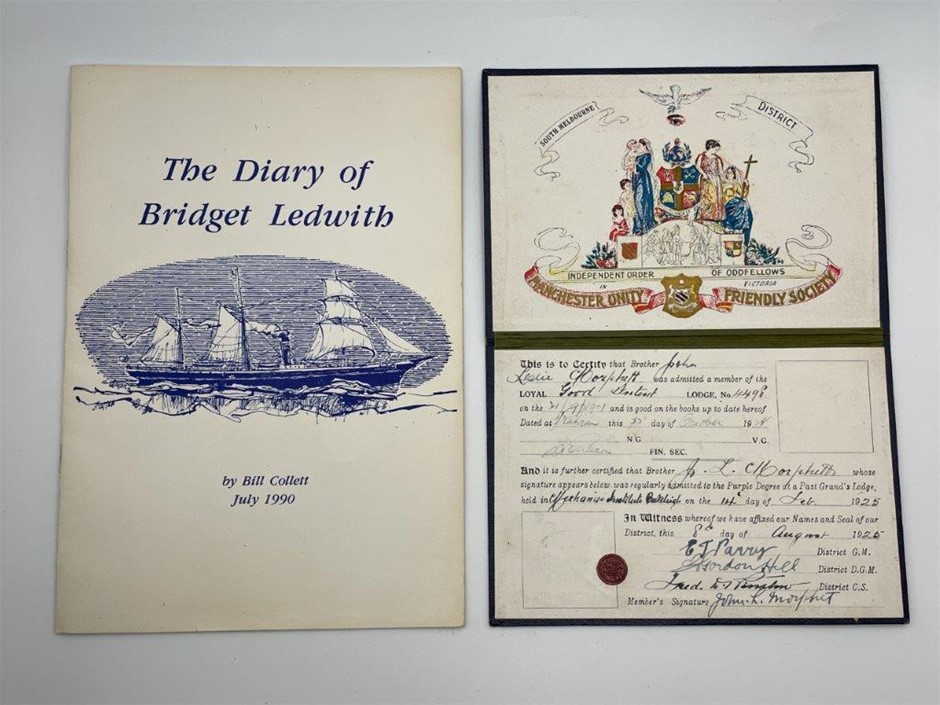 The Diary of
Bridget Ledwith
by Bill Collett
July 1990
SOUTH MELBOURNE
DISTRICT
INDEPENDENT ORDER OF ODDFELLOWS
IN VICTORIA
MANCHESTER UNITY FRIENDLY SOCIETY
This is to Certify that Brother John
Leslie Morphett was admitted a member of the
LOYAL Good Intent LODGE, No. 4498
on the and is good on the books up to date hereof
Dated at Prahran this day of October 19
N.G. V.G.
FIN. SEC.
And it is further certified that Brother J. L. Morphett whose
signature appears below was regularly admitted to the Purple Degree at a Past Grand's Lodge,
held in Mechanics Institute on the 14th day of Feb 1925
In Witness whereof we have affixed our Names and Seal of our
District, this 8th day of August 1925
E J Parry District G.M.
Gordon Hill District D.G.M.
Fred. District C.S.
Member's Signature John L. Morphet